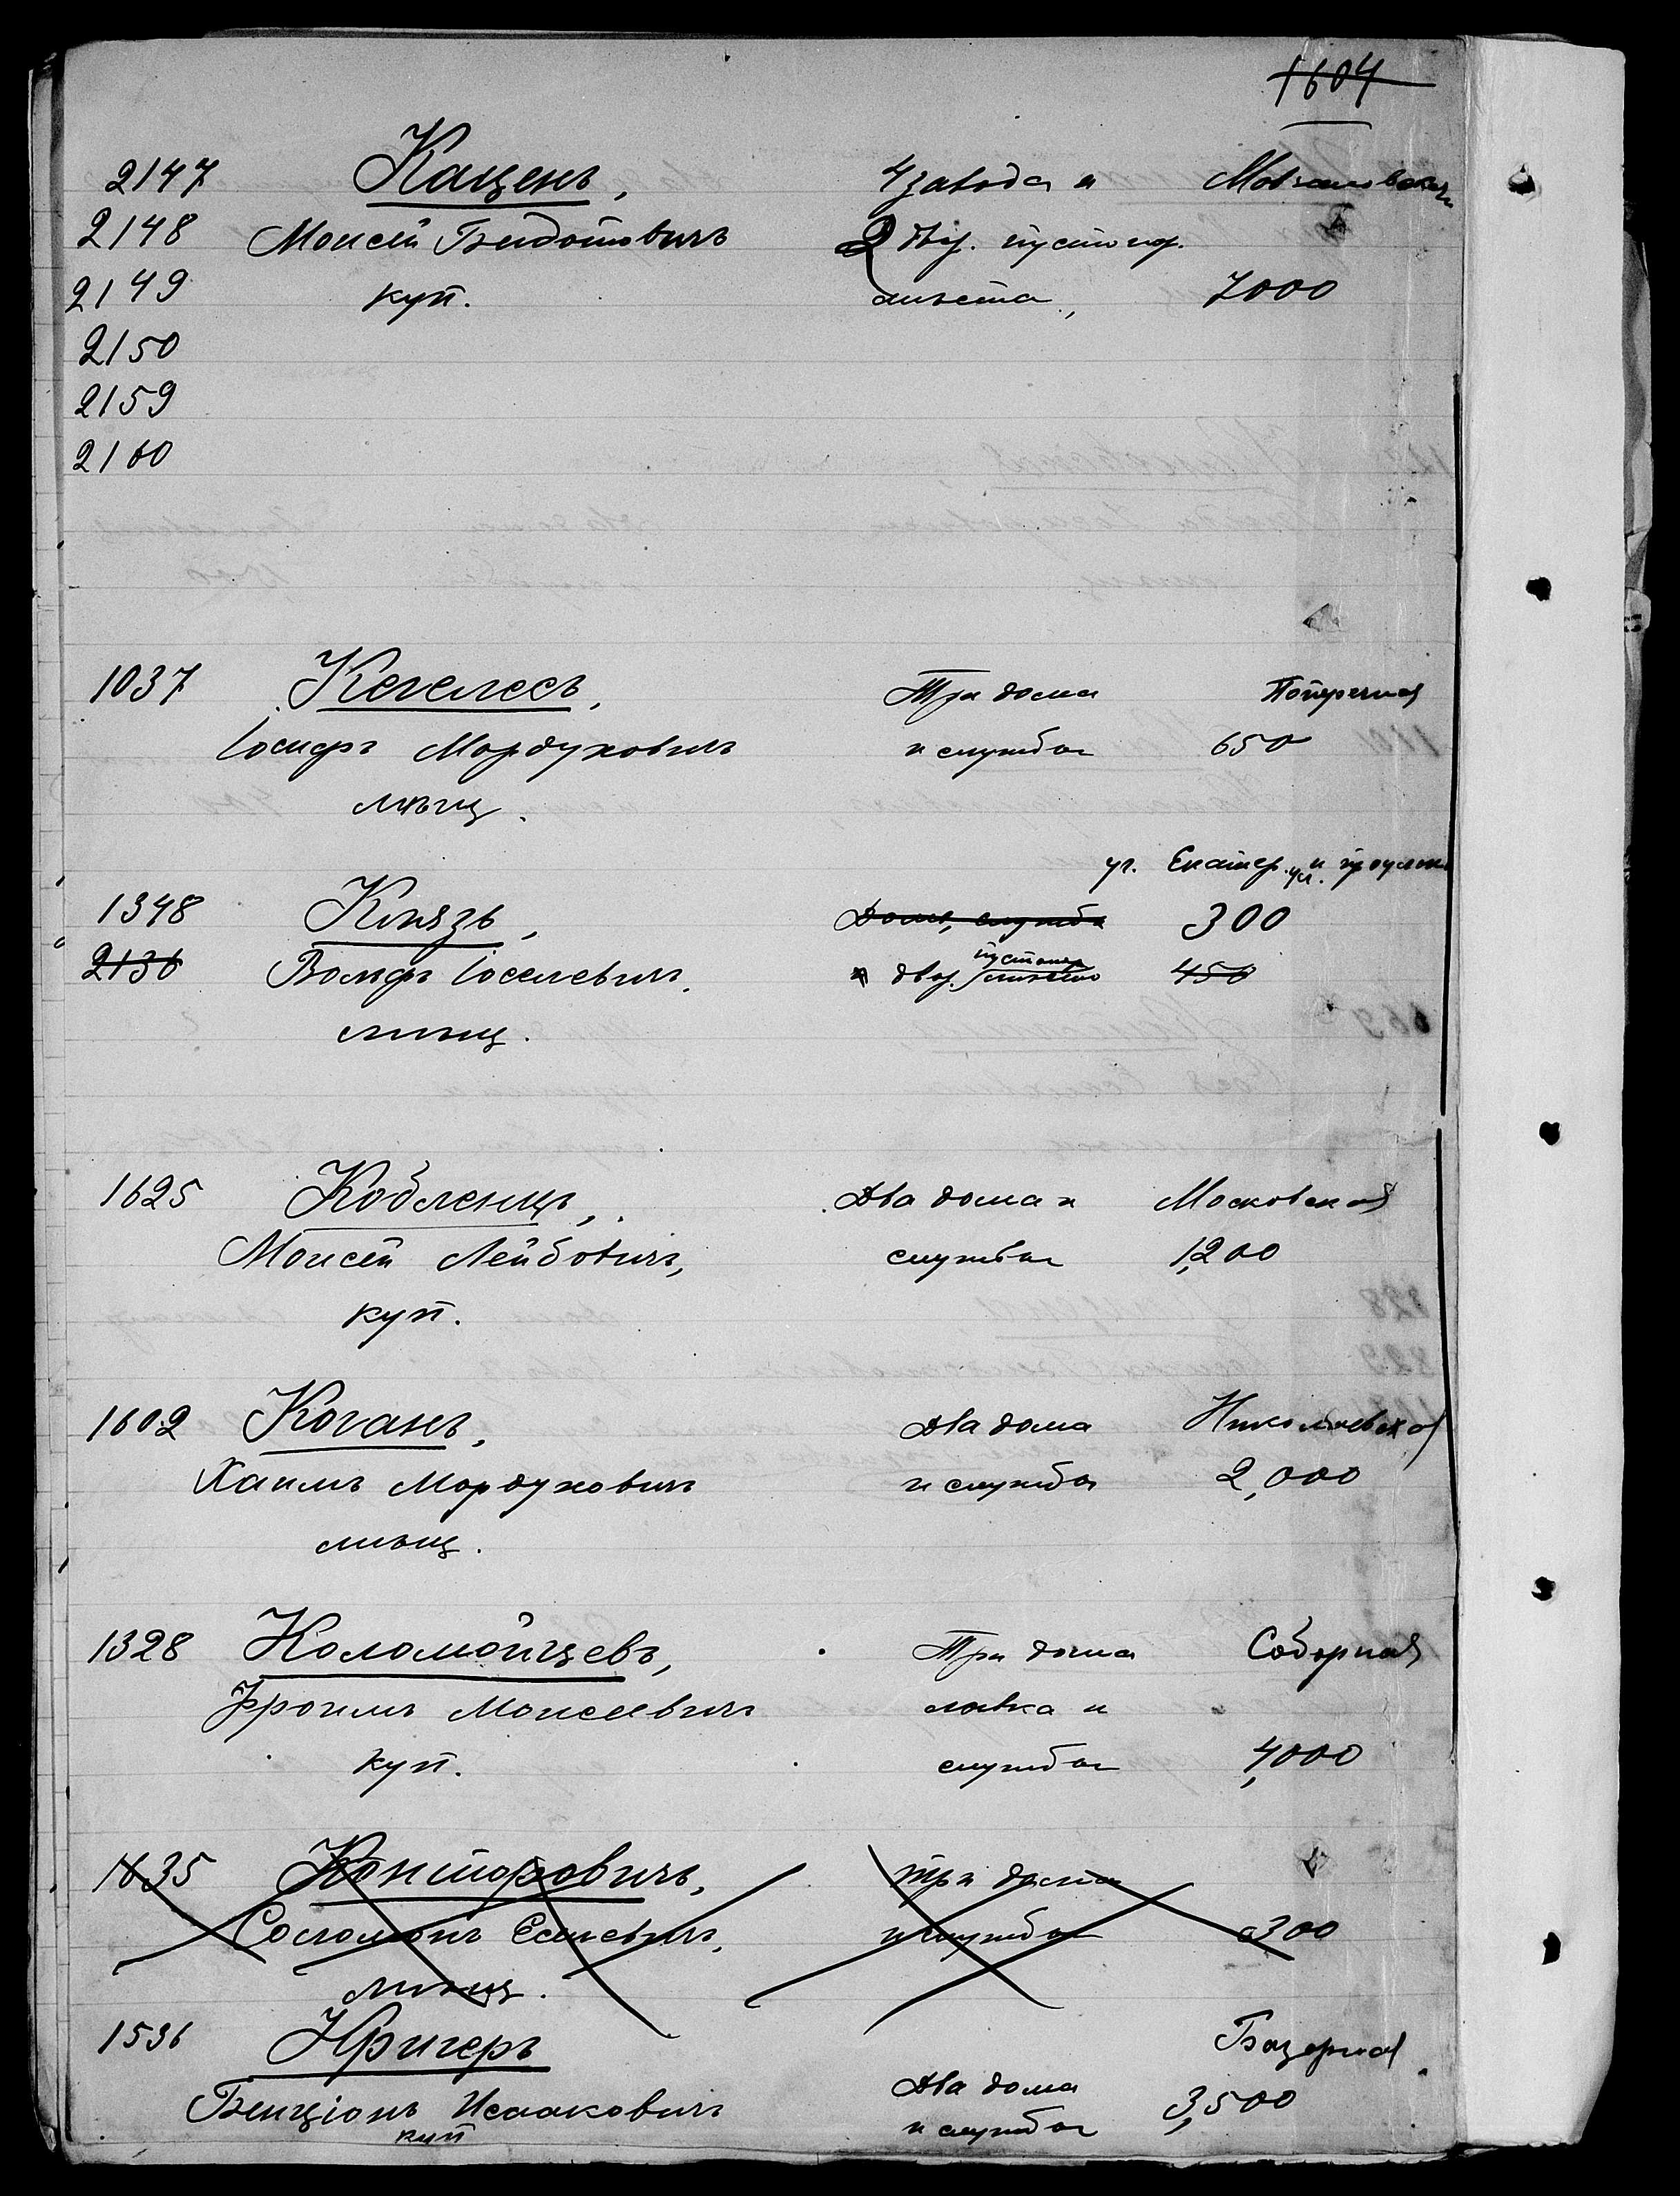 1604
2147 Каценъ, 4 завода и
2148 Моисей Бендетовичъ 2 двор. пустопор.
2149 куп. мѣста, 7000
2150
2159
2160
1037 Кегелесъ, Три дома Поперечная
Іосифъ Мордуховичъ и службы 650
мѣщ.
уг. Екатер. ул. и
1348 Князъ, Домъ, службы 300
2136 Вольфъ Іоселевичъ, и двор. пустопор. мѣсто 450
мѣщ.
1625 Кобленцъ, Два дома и Московская
Моисей Лейбовичъ, службы 1,200
куп.
1602 Коганъ, Два дома Николаевская
Хаимъ Мордуховичъ и службы 2,000
мѣщ.
1328 Коломойцевъ, Три дома Соборная
Фроимъ Моисеевичъ лавка и
куп. службы 4,000
1635 Конторовичъ, три дома
Соломонъ и службы 300
мѣщ.
1536 Кригеръ Базарная
Бенціонъ Исааковичъ Два дома 3,500
куп и службы